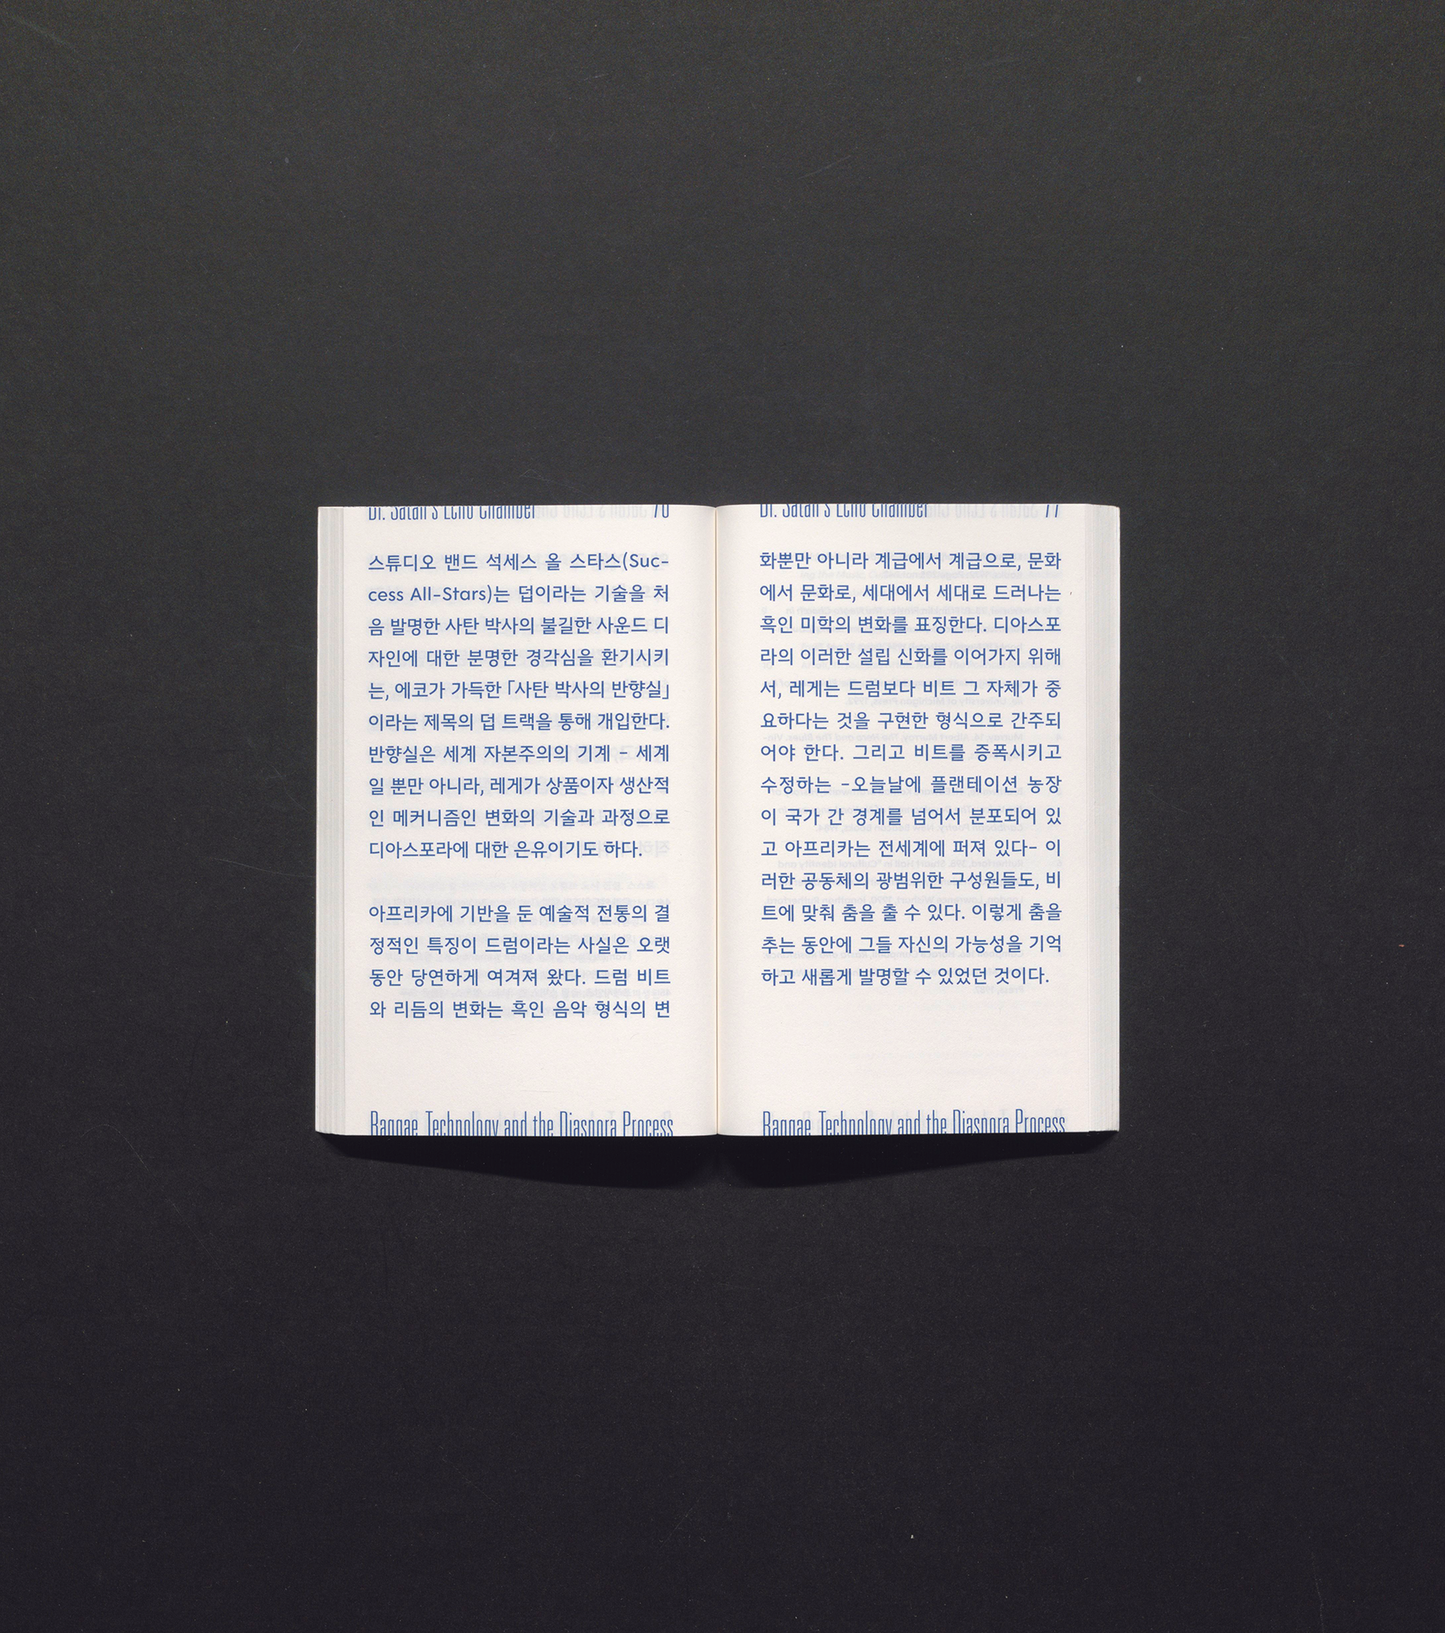 Dr. Satan's Echo Chamber 76
스튜디오 밴드 석세스 올 스타스(Suc-
cess All-Stars)는 덥이라는 기술을 처
음 발명한 사탄 박사의 불길한 사운드 디
자인에 대한 분명한 경각심을 환기시키
는, 에코가 가득한 「사탄 박사의 반향실」
이라는 제목의 덥 트랙을 통해 개입한다.
반향실은 세계 자본주의의 기계 – 세계
일 뿐만 아니라, 레게가 상품이자 생산적
인 메커니즘인 변화의 기술과 과정으로
디아스포라에 대한 은유이기도 하다.
아프리카에 기반을 둔 예술적 전통의 결
정적인 특징이 드럼이라는 사실은 오랫
동안 당연하게 여겨져 왔다. 드럼 비트
와 리듬의 변화는 흑인 음악 형식의 변
Raggae, Technology and the Diaspora Process
Dr. Satan's Echo Chamber 77
화뿐만 아니라 계급에서 계급으로, 문화
에서 문화로, 세대에서 세대로 드러나는
흑인 미학의 변화를 표징한다. 디아스포
라의 이러한 설립 신화를 이어가지 위해
서, 레게는 드럼보다 비트 그 자체가 중
요하다는 것을 구현한 형식으로 간주되
어야 한다. 그리고 비트를 증폭시키고
수정하는 –오늘날에 플랜테이션 농장
이 국가 간 경계를 넘어서 분포되어 있
고 아프리카는 전세계에 퍼져 있다– 이
러한 공동체의 광범위한 구성원들도, 비
트에 맞춰 춤을 출 수 있다. 이렇게 춤을
추는 동안에 그들 자신의 가능성을 기억
하고 새롭게 발명할 수 있었던 것이다.
Raggae, Technology and the Diaspora Process